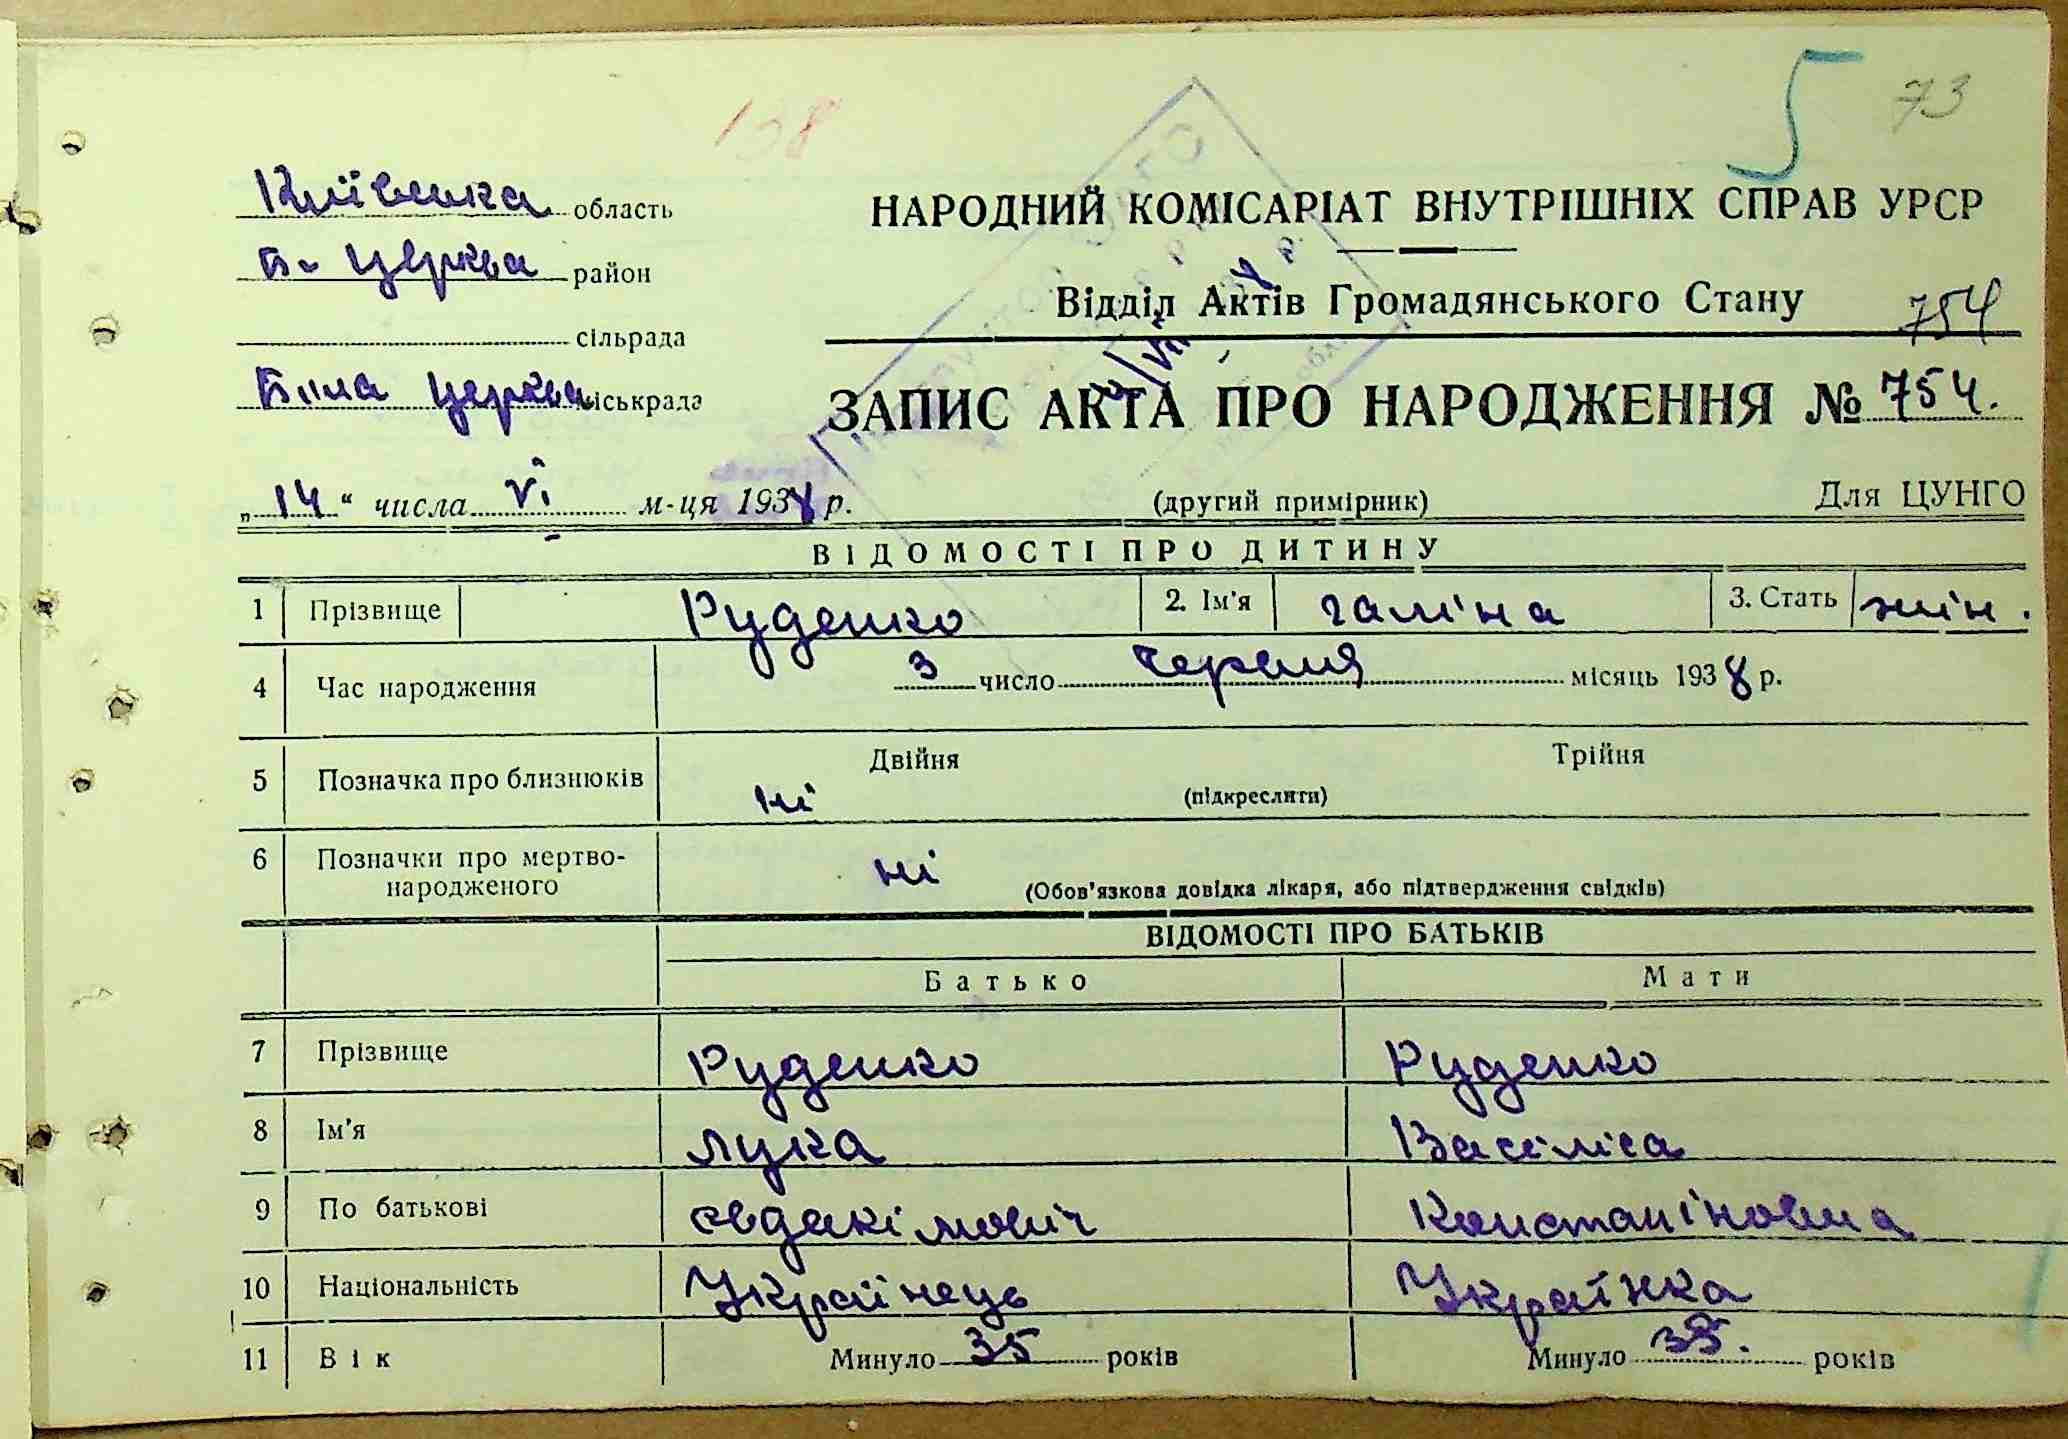 138
5 73
Київська область
НАРОДНИЙ КОМІСАРІАТ ВНУТРІШНІХ СПРАВ УРСР
Б-Церква район
Відділ Актів Громадянського Стану
754
сільрада
Біла Церква міськрада
ЗАПИС АКТА ПРО НАРОДЖЕННЯ № 754.
„14“ числа VI м-ця 1938 р. (другий примірник) Для ЦУНГО
ВІДОМОСТІ ПРО ДИТИНУ
1 Прізвище Руденко 2. Ім'я Галіна 3. Стать жін.
4 Час народження 3 число червня місяць 1938 р.
5 Позначка про близнюків ні Двійня (підкреслити) Трійня
6 Позначки про мертво-
народженого ні (Обов'язкова довідка лікаря, або підтвердження свідків)
ВІДОМОСТІ ПРО БАТЬКІВ
Батько Мати
7 Прізвище Руденко Руденко
8 Ім'я Лука Васіліса
9 По батькові Євдокімович Констаніновна
10 Національність Українець Українка
11 Вік Минуло 35 років Минуло 35. років